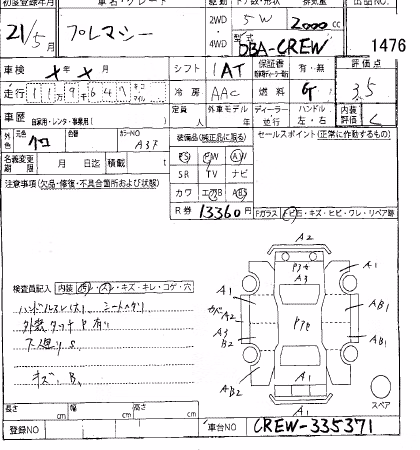 初度登録年月 車名・グレード 駆動 ドア数/形状 排気量 出品NO.
21/5月 プレマシー 2WD 4WD 5W 2000cc
型式 DBA-CREW 1476
車検 ×年×月 シフト IAT 保証書 有・無 評価点 3.5
走行 119千647 キロ マイル 冷房 AAC 燃料 G
車歴 自家用・レンタ・事業用( ) 定員 人 外車モデル 年 ディーラー 並行 ハンドル 左・右 内装評価 C
外色 クロ 色替 カラーNO A3F 装備品(純正品に限る) セールスポイント(正常に作動するもの)
PS PW AW
名義変更期限 月 日迄 積載 t SR TV ナビ
注意事項(欠品・修復・不具合箇所および状態) カワ エアB ABS
R券 13360円 Fガラス トビ石・キズ・ヒビ・ワレ・リペア跡
検査員記入 内装(汚レ・スレ・キズ・キレ・コゲ・穴
ハンドルスレ大 シートヘタリ
外装タッチP有り
下廻りS
キズ・B
A2
P7e
A3
A1
A1
A2
A3
B2
P7e
AB1
AB1
AB2
A1
A1
A1
スペア
長さ cm 幅 cm 高さ cm
登録NO 車台NO CREW-335371